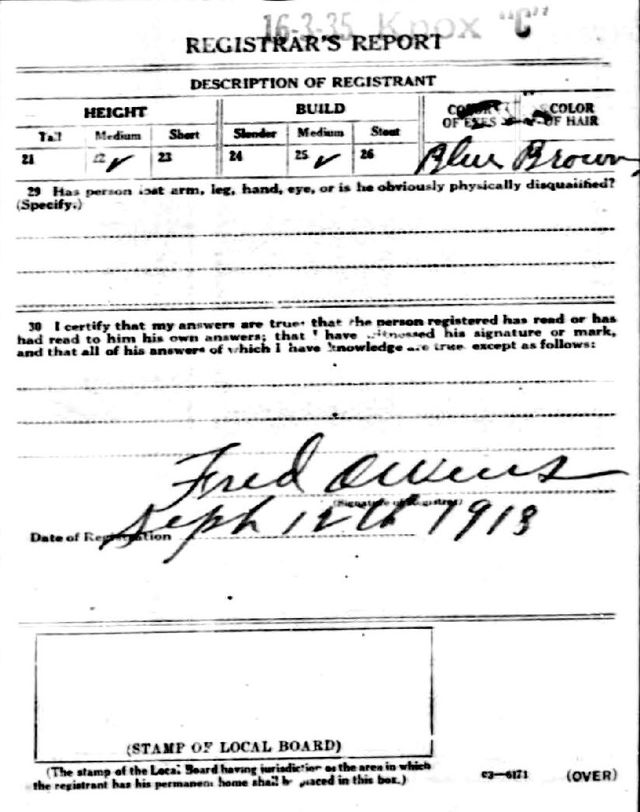 16-3-35 Knox "C"
REGISTRAR'S REPORT
DESCRIPTION OF REGISTRANT
HEIGHT BUILD COLOR OF EYES COLOR OF HAIR
Tall Medium Short Slender Medium Stout
21 22 ✓ 23 24 25 ✓ 26 Blue Brown
29 Has person lost arm, leg, hand, eye, or is he obviously physically disqualified?
(Specify.)
30 I certify that my answers are true; that the person registered has read or has
had read to him his own answers; that I have witnessed his signature or mark,
and that all of his answers of which I have knowledge are true, except as follows:
Fred Owens
(Signature of Registrar)
Date of Registration Sept 12th 1918
(STAMP OF LOCAL BOARD)
(The stamp of the Local Board having jurisdiction of the area in which
the registrant has his permanent home shall be placed in this box.)
c3—6171 (OVER)